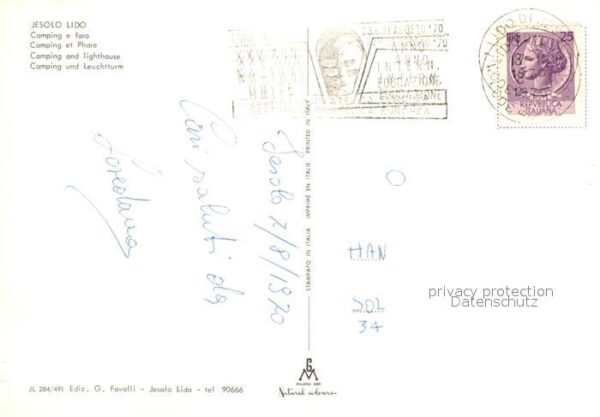 JESOLO LIDO
Camping e faro
Camping et Phare
Camping and lighthouse
Camping und Leuchtturm
25
REPVBBLICA
ITALIANA
Jesolo 7/8/1970
Cari saluti da
Loredana
STAMPATO IN ITALIA IMPRIMÉ EN ITALIE PRINTED IN ITALY
HAN
SOL
34
privacy protection
Datenschutz
MILANO
Natural colours
JL 284/491 Ediz. G. Favalli - Jesolo Lido - tel 90666